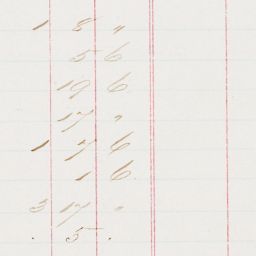 1 8 "
5 6
19 6
17 "
1 7 6
1 6
3 17 "
. 5 .